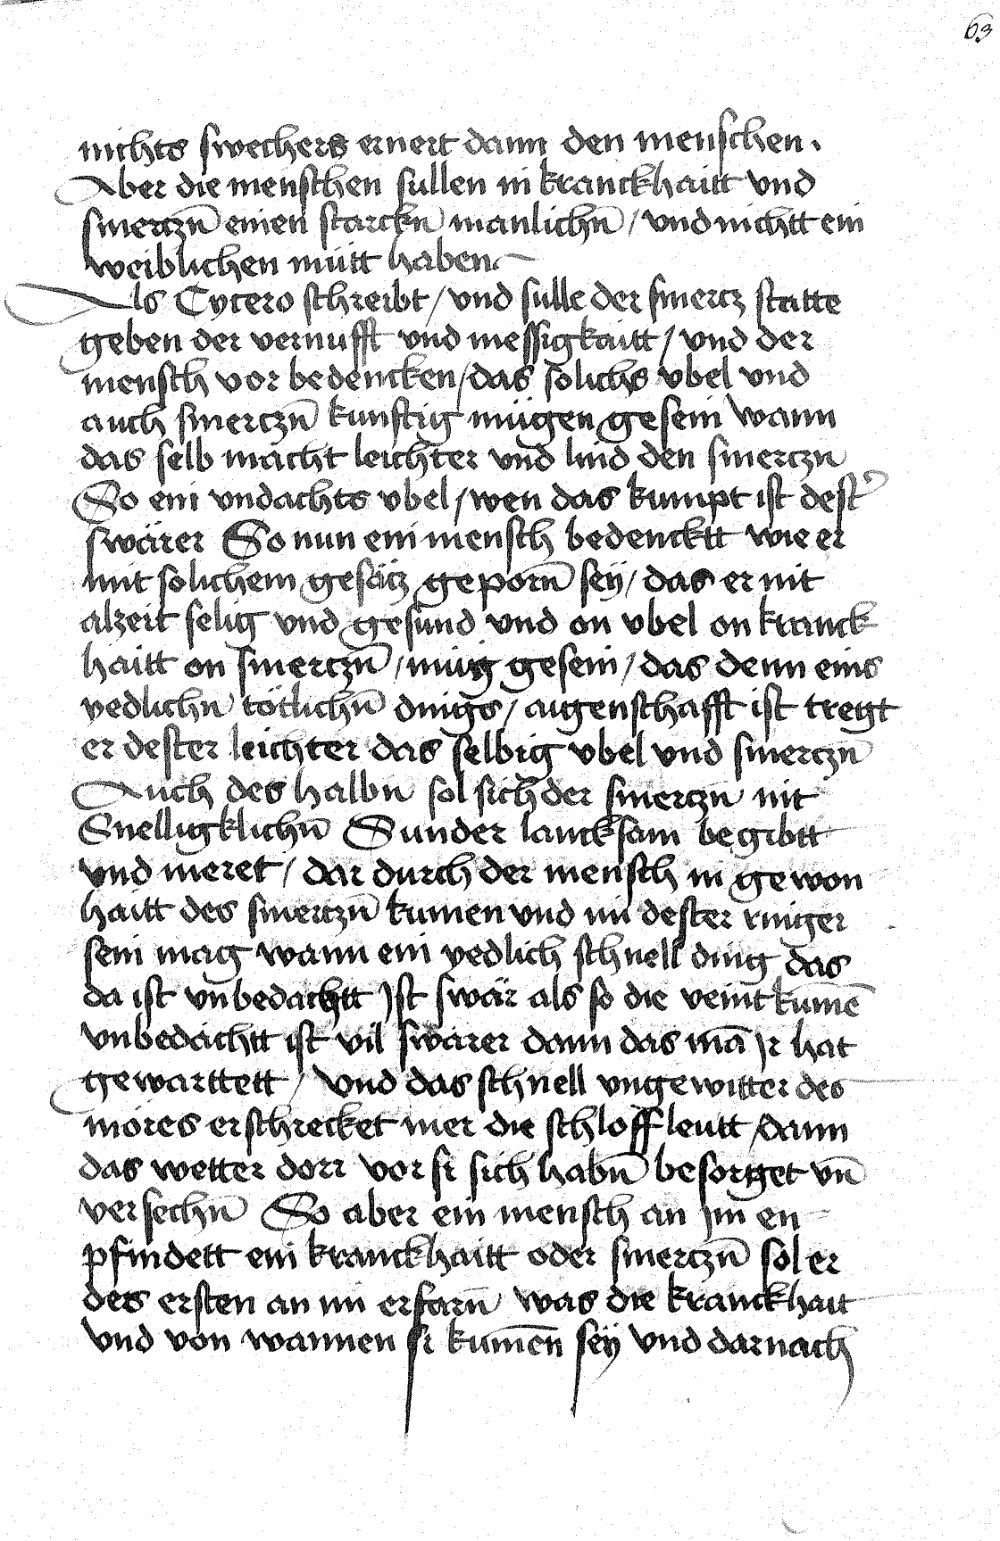 63
nichts swechers ernert dann den menschen.
Aber die menschen sullen in kranckhaitt vnd
smerczn̄ einen starckn̄ manlichn̄ / vnd nichtt ein
weiblichen mütt haben
Als Cycero schreibt / vnd sulle der smercz statte
geben der vernufft vnd messigkaitt / vnd der
mensch vor bedencken / das solichs vbel vnd
auch smerczn̄ kunftig mügen gesein wann
das selb macht leichter vnd lind den smerczn
So ein vndachts vbel / wen das kumpt ist dest᾽
swärer So nun ein mensch bedencktt wie er
mit solichem gesäcz geporn̄ seÿ / das er nit
alzeit selig vnd gesund vnd on vbel on kranck
haitt on smerczn̄ / müg gesein / das denn eins
yedlichn tötlichn̄ dings / aigenschafft ist tregt
er dester leichter das selbig vbel vnd smerczn̄
Auch des halbn sol sich der smerczn nit
Snelligklichn̄ Sunder lancksam begibtt
vnd meret / dar durch der mensch in gewon
haitt des smerczn̄ kumen vnd im dester ringer
sein mag wann ein yedlich schnell ding das
da ist vnbedachtt Jst swär als so die veint kūmē
vnbedachtt ist vil swärer dann das mā Jr hat
gewarttett / vnd das schnell vngewitter des
möres erschrecket mer die schloff leutt / dann
das wetter dorr vor si sich habn̄ besorget vn̄
versechn̄ So aber ein mensch an Jm en
pfindett ein kranckhaitt oder smerczn̄ sol er
des ersten an im erfarn̄ was die kranckhait
vnd von wannen si kumēn seÿ vnd darnach